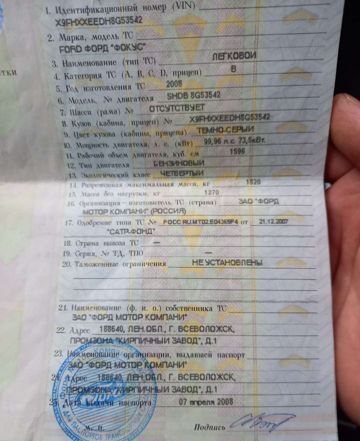 1. Идентификационный номер (VIN)
X9FHXXEEDH8G53542
2. Марка, модель ТС
FORD ФОРД "ФОКУС"
3. Наименование (тип ТС) ЛЕГКОВОЙ
4. Категория ТС (A, B, C, D, прицеп) B
5. Год изготовления ТС 2008
6. Модель, № двигателя SHDB 8G53542
7. Шасси (рама) № ОТСУТСТВУЕТ
8. Кузов (кабина, прицеп) № X9FHXXEEDH8G53542
9. Цвет кузова (кабины, прицепа) ТЕМНО-СЕРЫЙ
10. Мощность двигателя, л. с. (кВт) 99,96 л.с 73,5кВт
11. Рабочий объем двигателя, куб. см 1596
12. Тип двигателя БЕНЗИНОВЫЙ
13. Экологический класс ЧЕТВЕРТЫЙ
14. Разрешенная максимальная масса, кг
15. Масса без нагрузки, кг 1270
16. Организация - изготовитель ТС (страна) ЗАО "ФОРД
МОТОР КОМПАНИ" (РОССИЯ)
17. Одобрение типа ТС № от 21.12.2007
"САТР-ФОНД"
18. Страна вывоза ТС —
19. Серия, № ТД, ТПО —
20. Таможенные ограничения НЕ УСТАНОВЛЕНЫ
21. Наименование (ф. и. о.) собственника ТС
ЗАО "ФОРД МОТОР КОМПАНИ"
22. Адрес 188640, ЛЕН.ОБЛ., Г. ВСЕВОЛОЖСК,
ПРОМЗОНА "КИРПИЧНЫЙ ЗАВОД", Д.1
23. Наименование организации, выдавшей паспорт
ЗАО "ФОРД МОТОР КОМПАНИ"
24. Адрес 188640, ЛЕН.ОБЛ., Г. ВСЕВОЛОЖСК,
ПРОМЗОНА "КИРПИЧНЫЙ ЗАВОД", Д.1
25. Дата выдачи паспорта 07 апреля 2008
М. П. Подпись